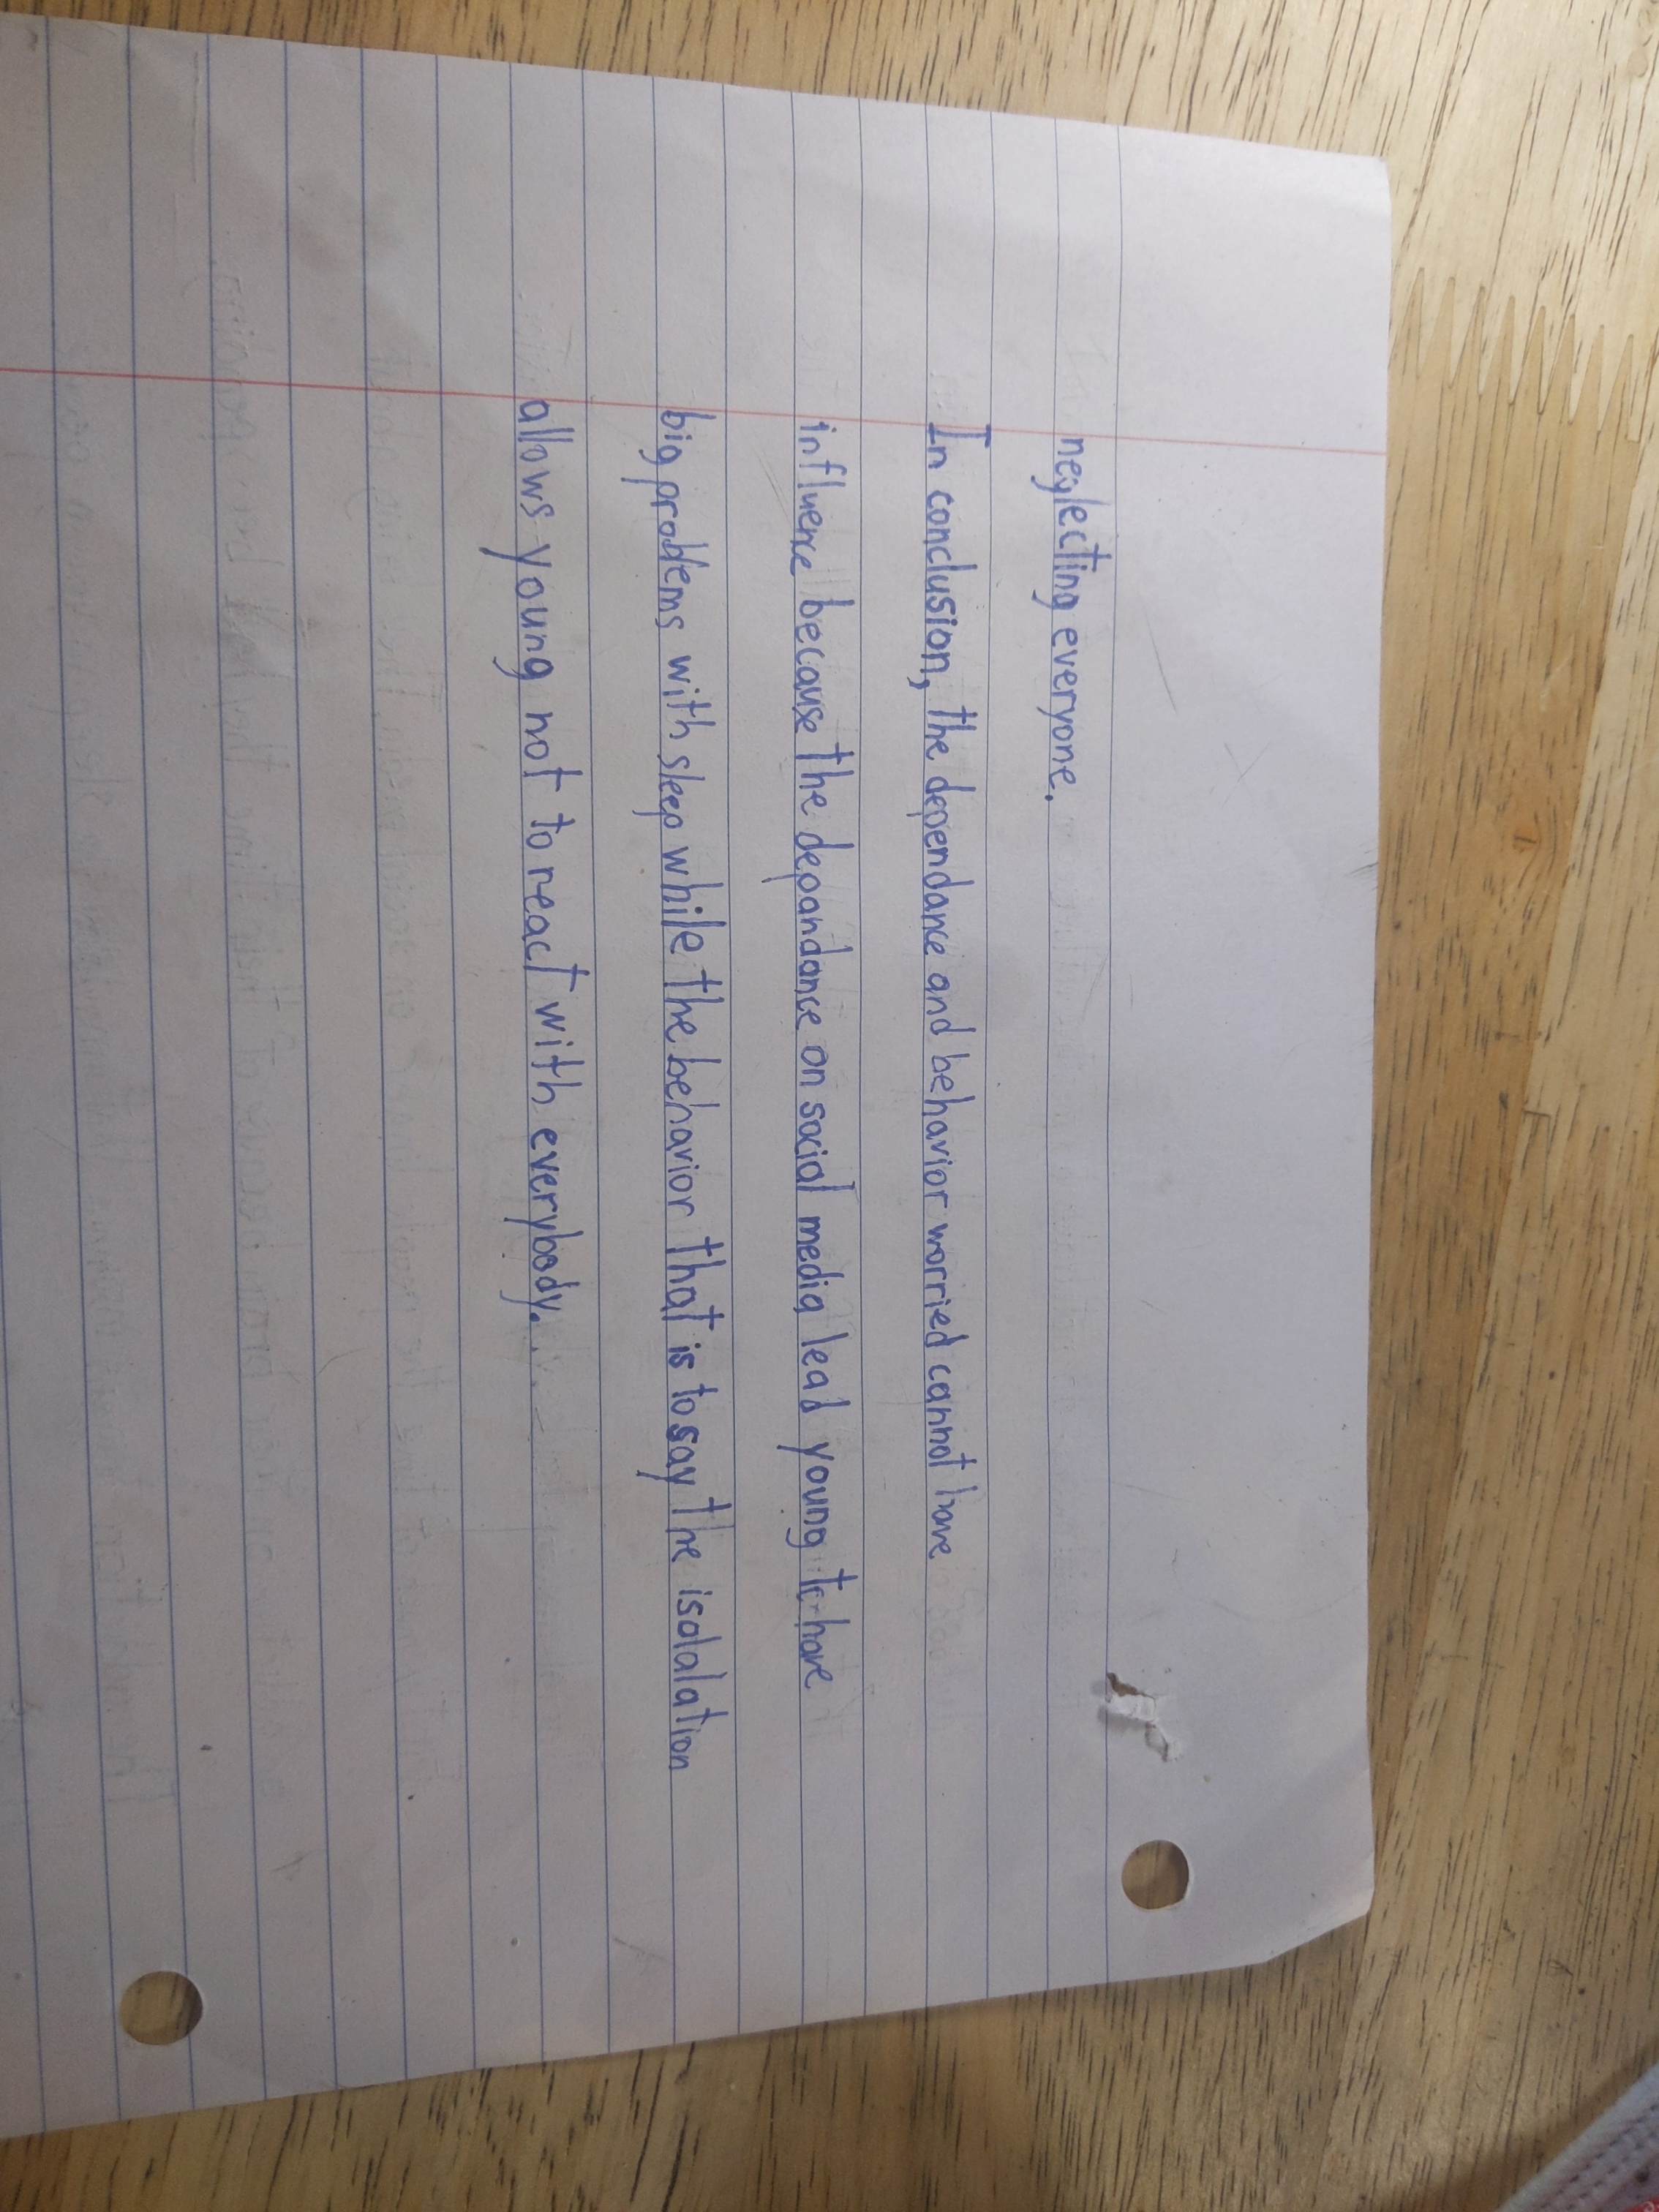 neglecting everyone.
In conclusion, the dependance and behavior worried cannot have
influence because the depandance on social media lead young to have
big problems with sleep while the behavior that is to say the isolalation
allows young not to react with everybody.